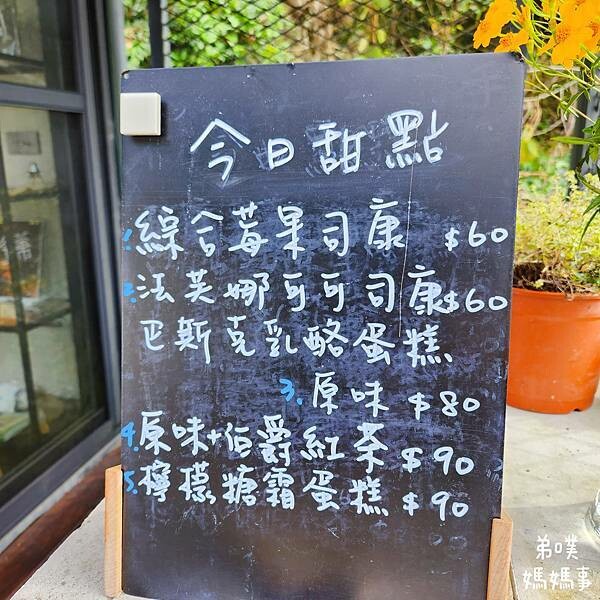 今日甜點
1.綜合莓果司康 $60
2.法芙娜可可司康$60
巴斯克乳酪蛋糕
3.原味 $80
4.原味+伯爵紅茶 $90
5.檸檬糖霜蛋糕 $90
弟噗
媽媽事